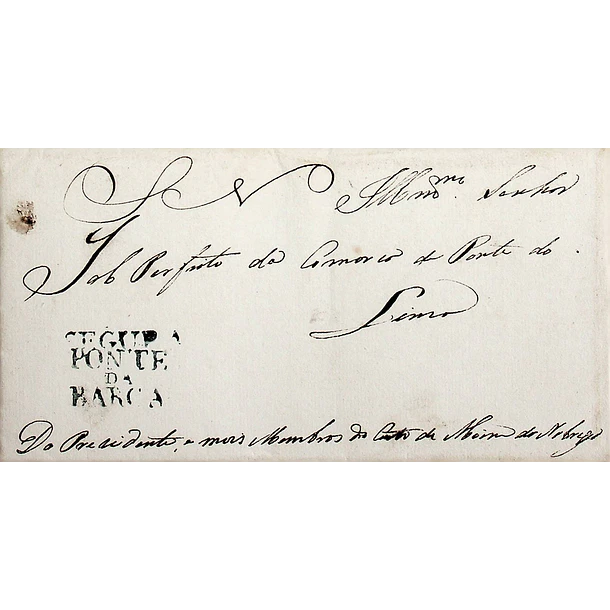 S N Illmo. Senhor
Sub Perfeito da Comarca de Ponte do
Lima
SEGURA
PONTE
DA
BARCA
Do Presidente, e mais Membros do de Moina da Nobrega